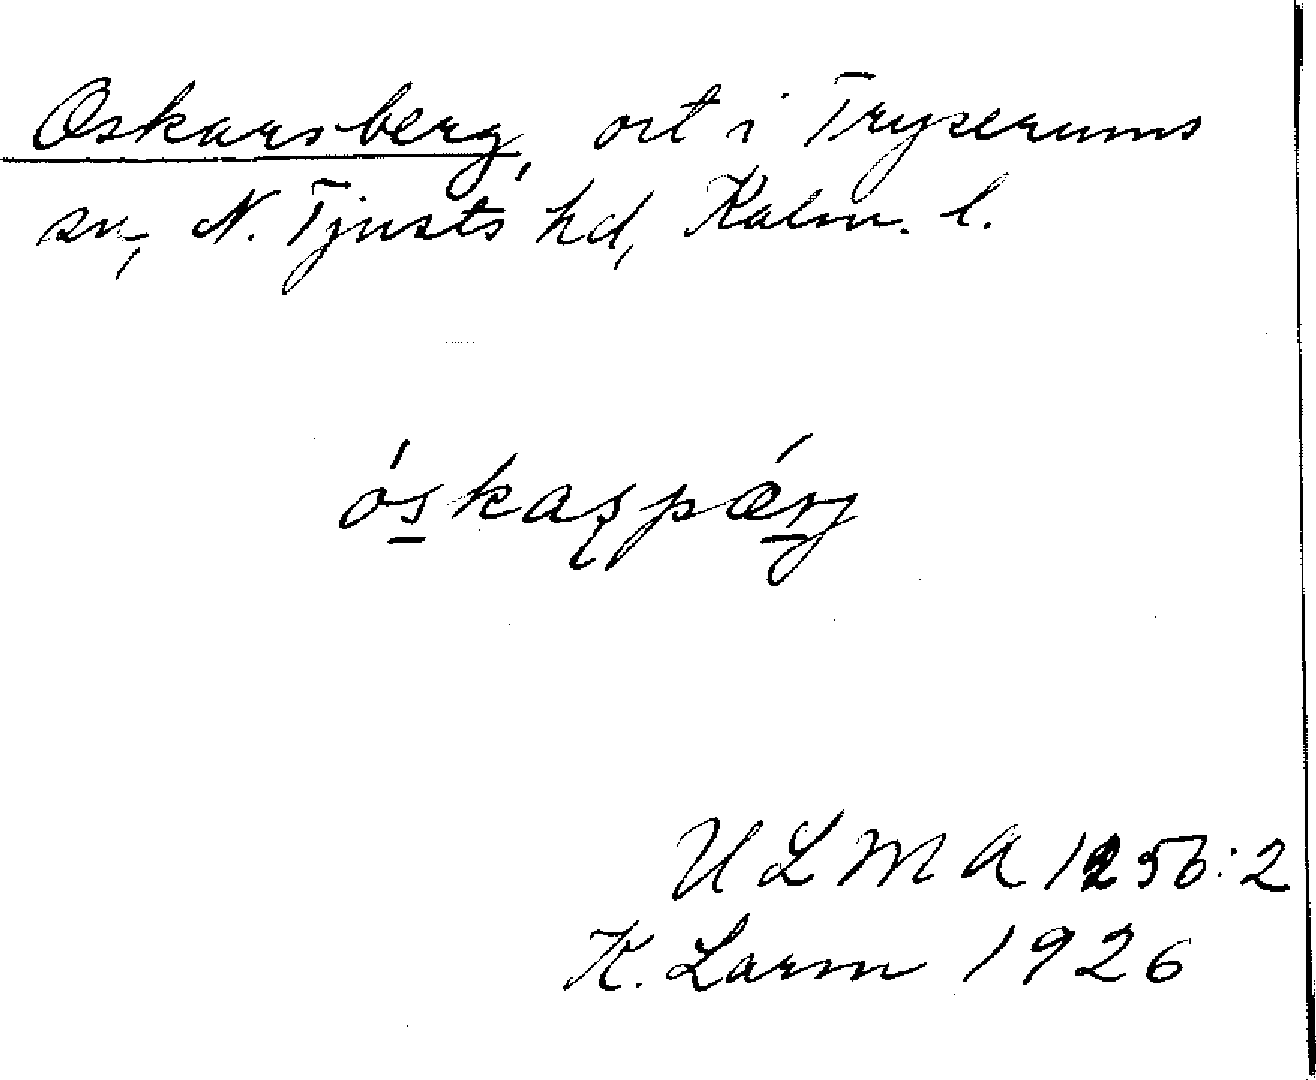 Oskarsberg, ort i Tryserums
sn, N. Tjusts hd, Kalm. l.
óskaʂpǽrj
ULMA 1256:2
K. Larm 1926